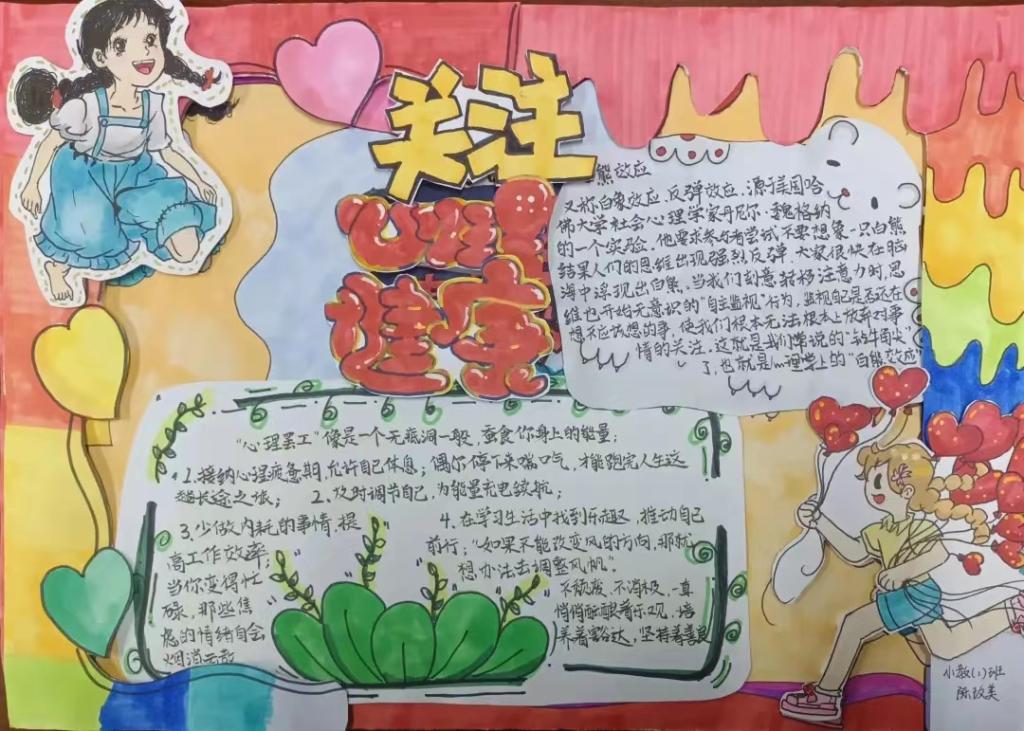 关注
心理
健康
熊效应
又称白象效应、反弹效应，源于美国哈
佛大学社会心理学家丹尼尔·魏格纳
的一个实验，他要求参与者尝试不要想象一只白熊
结果人们的思维出现强烈反弹，大家很快在脑
海中浮现出白熊，当我们刻意转移注意力时，思
维也开始无意识的“自主监视”行为，监视自己是否还在
想不应该想的事，使我们根本无法根本上放弃对事
情的关注，这就是我们常说的“钻牛角尖”
了，也就是心理学上的“白熊效应”
“心理罢工”像是一个无底洞一般，蚕食你身上的能量；
1.接纳心理疲惫期，允许自己休息；偶尔停下来喘口气，才能跑完人生这
趟长途之旅； 2.及时调节自己，为能量充电续航；
3.少做内耗的事情，提
高工作效率；
当你变得忙
碌，那些焦
虑的情绪自会
烟消云散
4.在学习生活中找到乐趣，推动自己
前行；“如果不能改变风的方向，那就
想办法去调整风帆”。
不颓废、不消极，一直
悄悄酝酿着乐观，培
养着豁达，坚持着善良
小教(1)班
陈 美